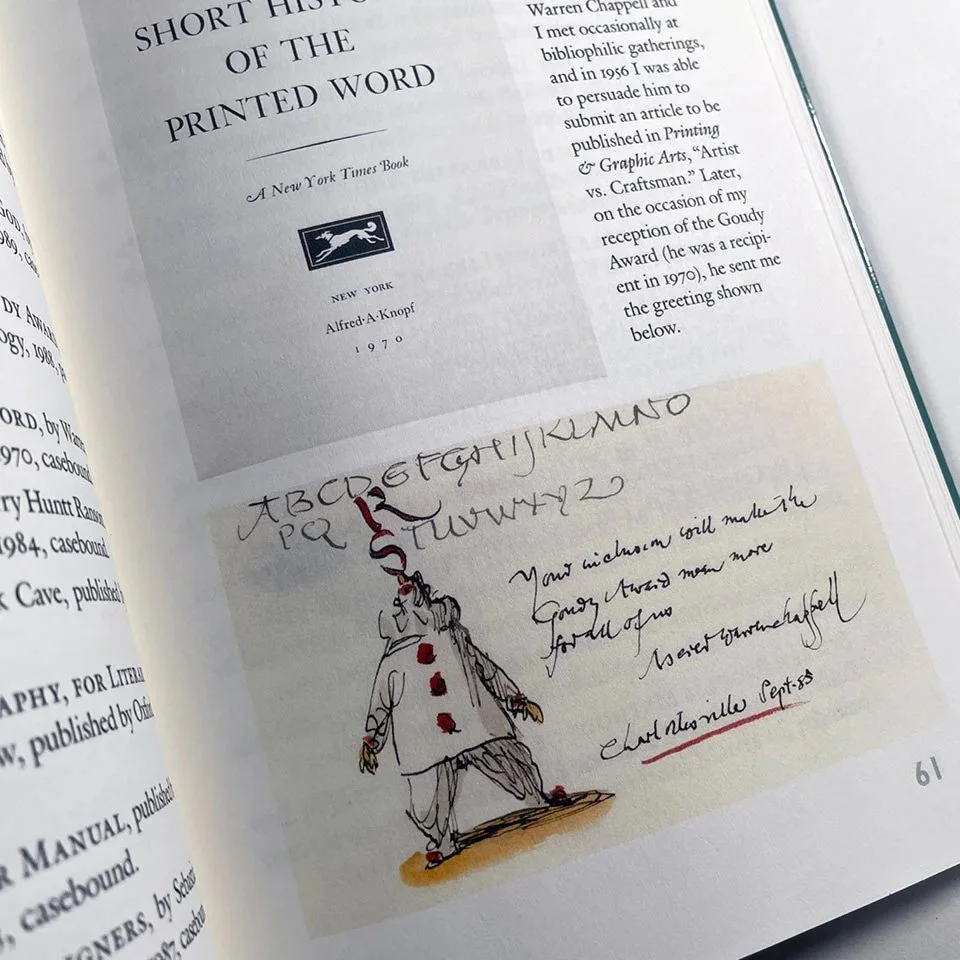 SHORT HISTO
OF THE
PRINTED WORD
A New York Times Book
NEW YORK
Alfred·A·Knopf
1970
Warren Chappell and
I met occasionally at
bibliophilic gatherings,
and in 1956 I was able
to persuade him to
submit an article to be
published in Printing
& Graphic Arts, “Artist
vs. Craftsman.” Later,
on the occasion of my
reception of the Goudy
Award (he was a recipi-
ent in 1970), he sent me
the greeting shown
below.
ABCDEFGHIJKLMNO
PQRSTUVWXYZ
Your inclusion will make the
Goudy Award mean more
for all of us
warren chappell
Charlottesville Sept·88
61
989, cas
DY AWAR
ogy, 1988, p
ORD, by Warr
970, casebound
ry Huntt Ranso
1984, casebound
k Cave, published
APHY, FOR LITERA
w, published by Oxfo
R MANUAL, published
, casebound.
IGNERS, by Sebast
987, casebou